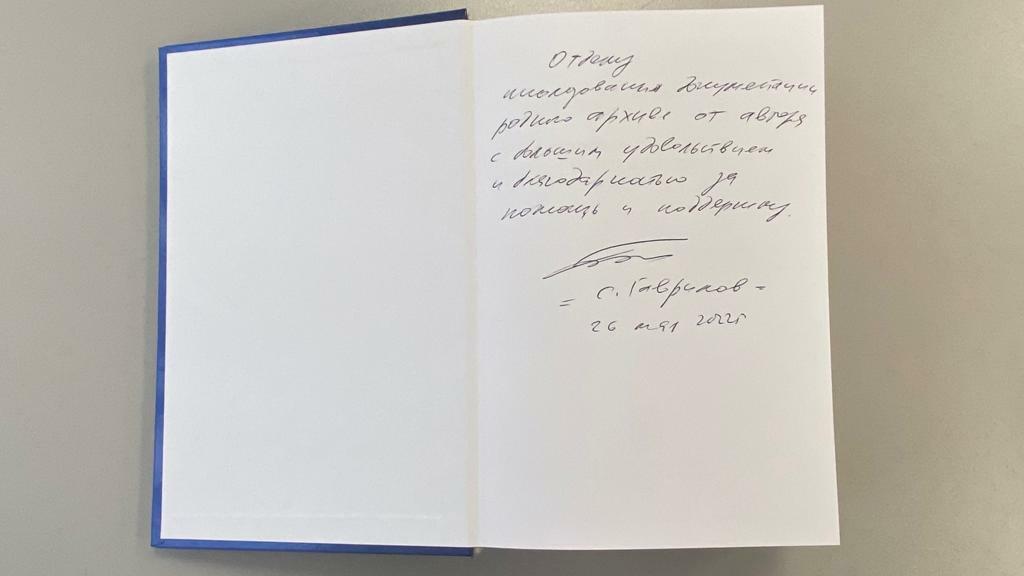 Отделу
использования документации
родного архива от автора
с большим удовольствием
и благодарностью за
помощь и поддержку.
= С. Гавриков =
26 мая 2022г